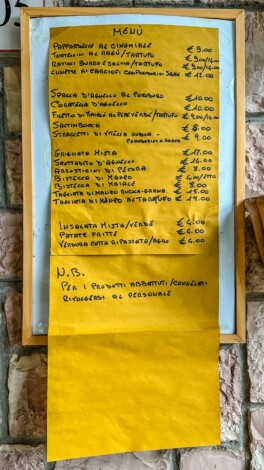 05
MENÙ
PAPPARDELLE AL CINGHIALE € 9.00
TORTELLINI AL RAGÙ/TARTUFO € 9.00/14.00
RAVIOLI BURRO E SALVIA/TARTUFO € 9.00/14.00
LUNETTE AI CARCIOFI CON POMODORINI E SPEK € 12.00
SPALLA D'AGNELLO AL POMODORO € 10.00
CORATELLA D'AGNELLO € 10.00
FILETTO DI MAIALE AL PEPE VERDE/TARTUFO € 9.00/14.00
SALTIMBOCCA € 8.00
STRACCETTI DI VITELLO RUCOLA - POMODORINI E GRANA € 9.00
GRIGLIATA MISTA € 12.00
SCOTTADITO D'AGNELLO € 14.00
ARROSTICINI DI PECORA € 8.00
BISTECCA DI MANZO € 4.00/ETTO
BISTECCA DI MAIALE € 8.00
TAGLIATA DI MANZO RUCOLA-GRANA € 15.00
TAGLIATA DI MANZO AL TARTUFO € 19.00
INSALATA MISTA/VERDE € 4.00
PATATE FRITTE € 4.00
VERDURA COTTA RIPASSATA/AGRO € 4.00
N.B.
PER I PRODOTTI ABBATTUTI/CONGELATI
RIVOLGERSI AL PERSONALE